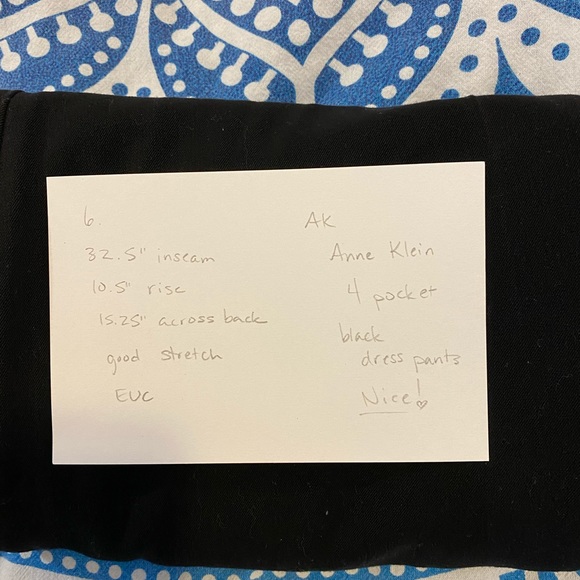 6.
32.5" inseam
10.5" rise
15.25" across back
good stretch
EUC
AK
Anne Klein
4 pocket
black
dress pants
Nice!